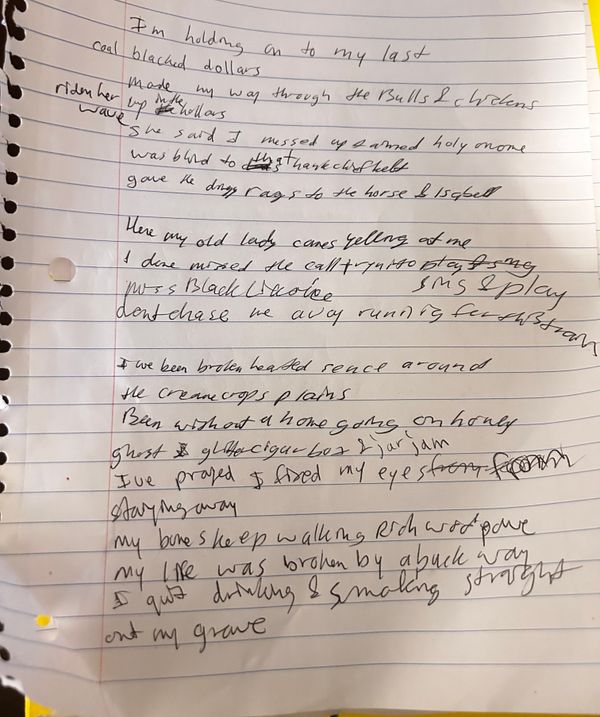 I'm holding on to my last
coal blacked dollars
made my way through the Bulls & chickens
riden her wave up in the hollars
She said I messed up & aimed holy on one
was blind to that
gave the rags to the horse & Isabell
Here my old lady comes yelling at me
I done missed the call tryin to play & sing
sing & play
miss Black Licorice
dont chase me away running for this train
I've been broken hearted sence around
the creame crops plains
Been without a home going on honey
ghost cigar box & jar jam
I've prayed I fixed my eyes from
staying away
my bones keep walking Rich wood pave
my life was broken by a back way
I quit drinking & smoking straight
out my grave